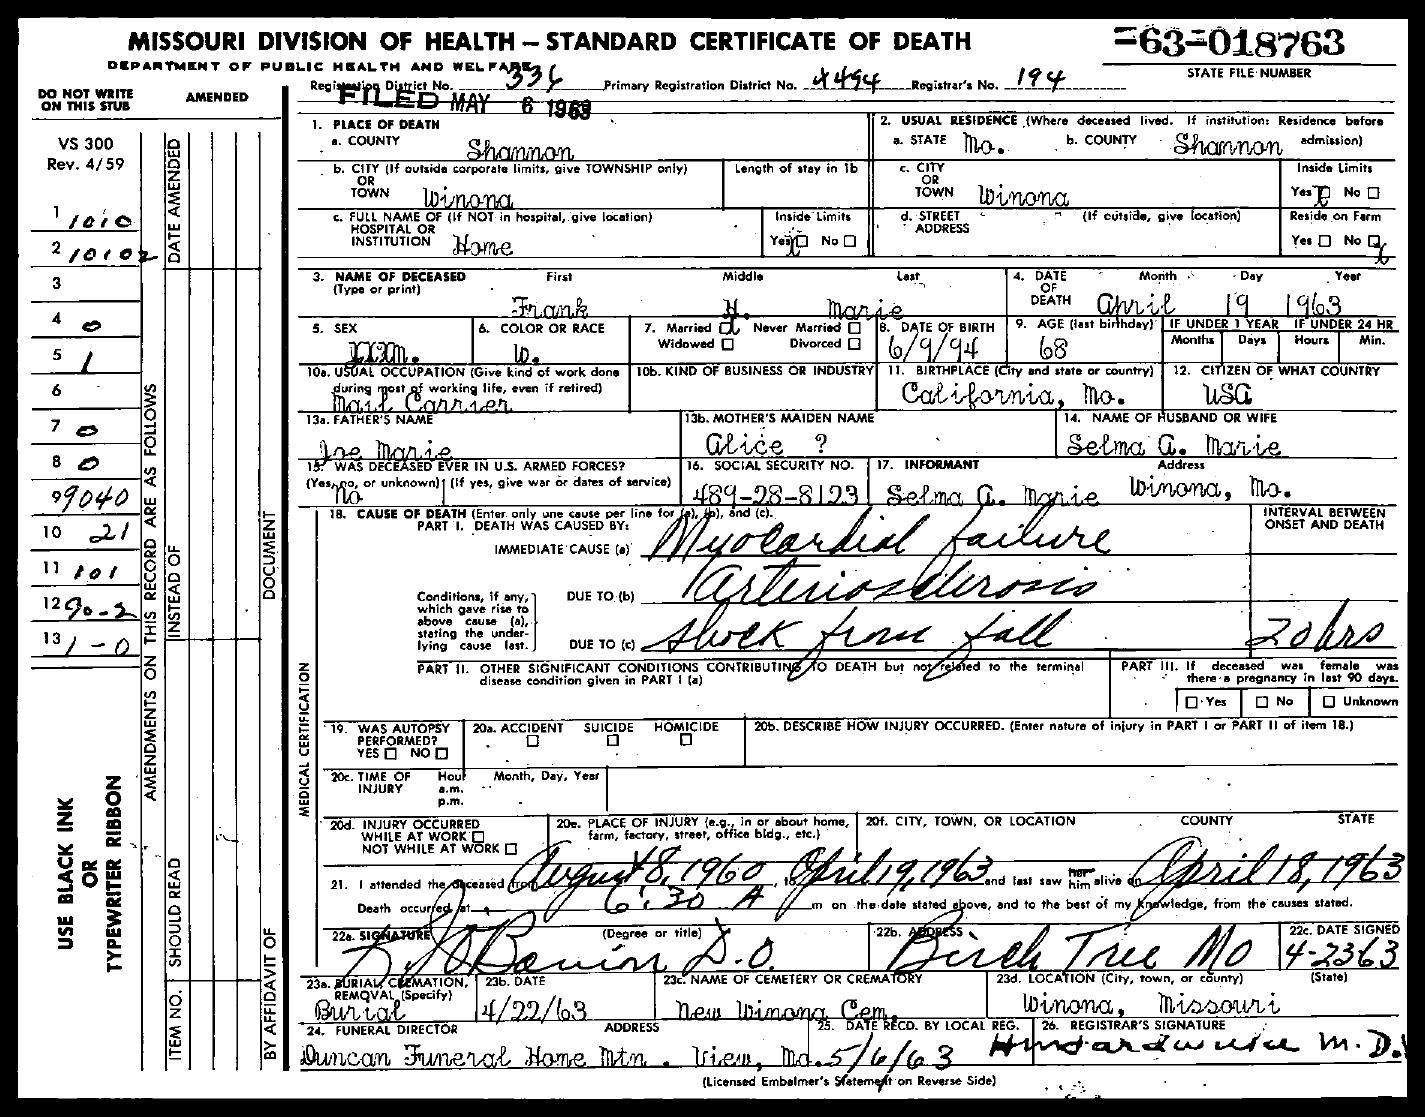 MISSOURI DIVISION OF HEALTH – STANDARD CERTIFICATE OF DEATH
-63-018763
DEPARTMENT OF PUBLIC HEALTH AND WELFARE
STATE FILE NUMBER
Registration District No. 336 Primary Registration District No. 4494 Registrar's No. 194
FILED MAY 6 1963
DO NOT WRITE ON THIS STUB
AMENDED
VS 300
Rev. 4/59
1 1010
2 10102
3
4 0
5 1
6
7 0
8 0
9 9040
10 21
11 101
12 90-2
13 1-0
USE BLACK INK
OR
TYPEWRITER RIBBON
AMENDMENTS ON THIS RECORD ARE AS FOLLOWS
DATE AMENDED
INSTEAD OF
SHOULD READ
ITEM NO.
DOCUMENT
BY AFFIDAVIT OF
MEDICAL CERTIFICATION
1. PLACE OF DEATH
a. COUNTY Shannon
2. USUAL RESIDENCE (Where deceased lived. If institution: Residence before admission)
a. STATE Mo. b. COUNTY Shannon
b. CITY (If outside corporate limits, give TOWNSHIP only) OR TOWN Winona
Length of stay in 1b
c. CITY OR TOWN Winona
Inside Limits
Yes X No
c. FULL NAME OF (If NOT in hospital, give location) HOSPITAL OR INSTITUTION Home
Inside Limits
Yes X No
d. STREET ADDRESS (If outside, give location)
Reside on Farm
Yes No X
3. NAME OF DECEASED (Type or print)
First Middle Last
Frank H. Marie
4. DATE OF DEATH Month Day Year
April 19 1963
5. SEX
M.
6. COLOR OR RACE
W.
7. Married X Never Married
Widowed Divorced
8. DATE OF BIRTH
6/9/94
9. AGE (last birthday)
68
IF UNDER 1 YEAR
Months Days
IF UNDER 24 HR
Hours Min.
10a. USUAL OCCUPATION (Give kind of work done during most of working life, even if retired)
Mail Carrier
10b. KIND OF BUSINESS OR INDUSTRY
11. BIRTHPLACE (City and state or country)
California, Mo.
12. CITIZEN OF WHAT COUNTRY
USA
13a. FATHER'S NAME
Joe Marie
13b. MOTHER'S MAIDEN NAME
Alice ?
14. NAME OF HUSBAND OR WIFE
Selma A. Marie
15. WAS DECEASED EVER IN U.S. ARMED FORCES?
(Yes, no, or unknown) (If yes, give war or dates of service)
No
16. SOCIAL SECURITY NO.
489-28-8123
17. INFORMANT Address
Selma A. Marie Winona, Mo.
18. CAUSE OF DEATH (Enter only one cause per line for (a), (b), and (c).
PART I. DEATH WAS CAUSED BY:
INTERVAL BETWEEN ONSET AND DEATH
IMMEDIATE CAUSE (a) Myocardial failure
Conditions, if any, which gave rise to above cause (a), stating the underlying cause last.
DUE TO (b) Arteriosclerosis
DUE TO (c) shock from fall 20 hrs
PART II. OTHER SIGNIFICANT CONDITIONS CONTRIBUTING TO DEATH but not related to the terminal disease condition given in PART I (a)
PART III. If deceased was female was there a pregnancy in last 90 days.
Yes No Unknown
19. WAS AUTOPSY PERFORMED?
YES NO
20a. ACCIDENT SUICIDE HOMICIDE
20b. DESCRIBE HOW INJURY OCCURRED. (Enter nature of injury in PART I or PART II of item 18.)
20c. TIME OF INJURY Hour a.m. p.m. Month, Day, Year
20d. INJURY OCCURRED
WHILE AT WORK
NOT WHILE AT WORK
20e. PLACE OF INJURY (e.g., in or about home, farm, factory, street, office bldg., etc.)
20f. CITY, TOWN, OR LOCATION COUNTY STATE
21. I attended the deceased from August 8, 1960, to April 19, 1963 and last saw her him alive on April 18, 1963
Death occurred at 6:30 A m on the date stated above, and to the best of my knowledge, from the causes stated.
22a. SIGNATURE (Degree or title)
D.O.
22b. ADDRESS
Birch Tree Mo
22c. DATE SIGNED
4-23 63
23a. BURIAL, CREMATION, REMOVAL (Specify)
Burial
23b. DATE
4/22/63
23c. NAME OF CEMETERY OR CREMATORY
New Winona Cem.
23d. LOCATION (City, town, or county) (State)
Winona, Missouri
24. FUNERAL DIRECTOR ADDRESS
Duncan Funeral Home Mtn. View, Mo.
25. DATE RECD. BY LOCAL REG.
5/6/63
26. REGISTRAR'S SIGNATURE
M.D.
(Licensed Embalmer's Statement on Reverse Side)